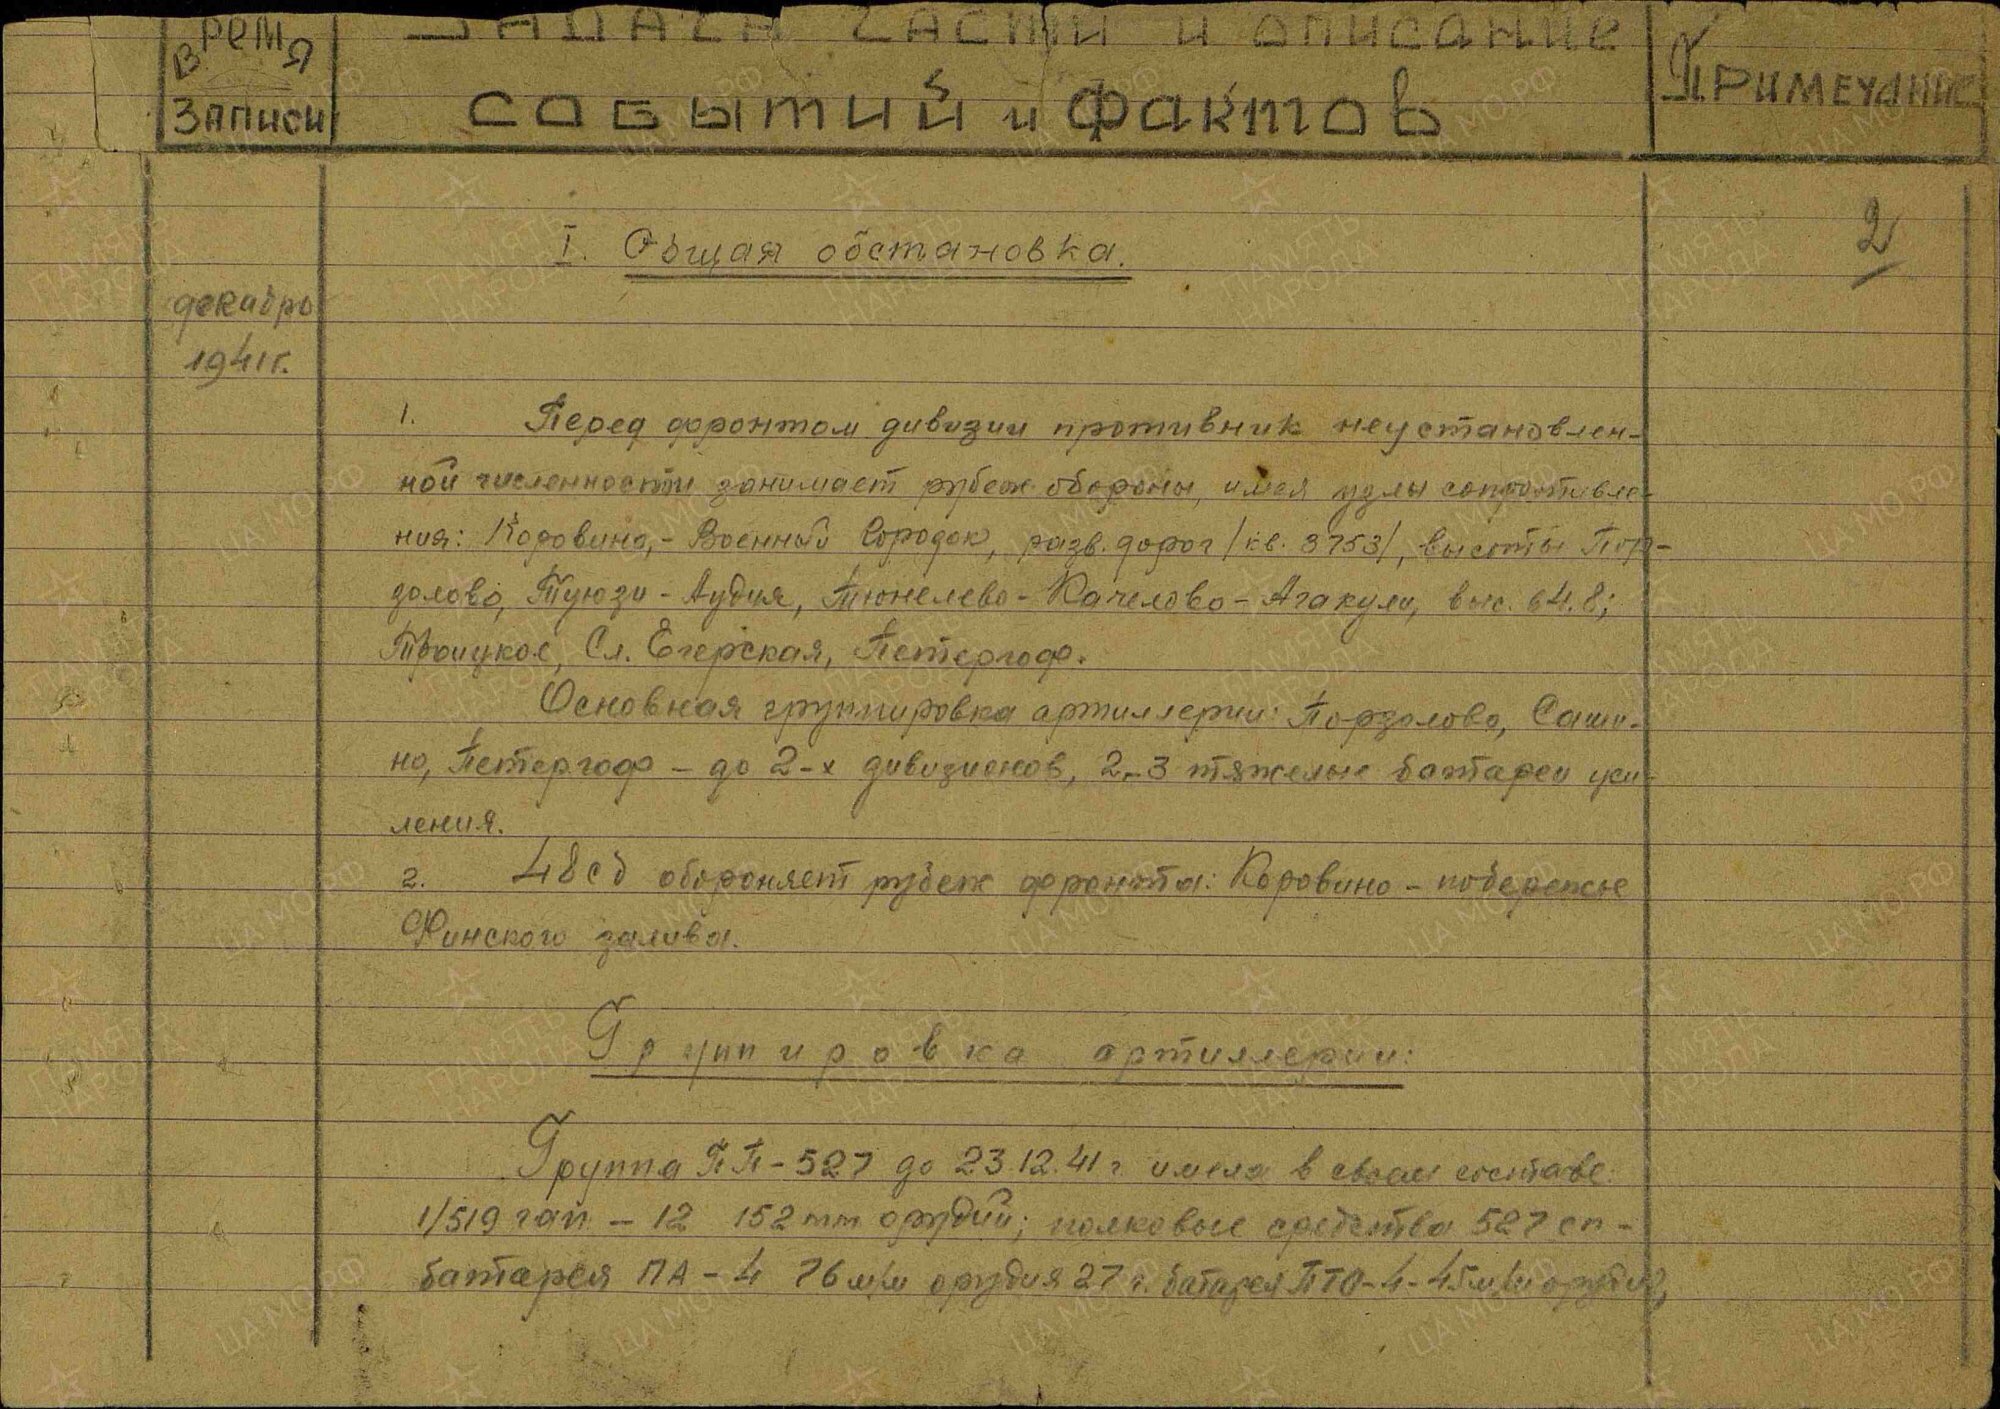 Время
Записи
Задача части и описание
событий и фактов
Примечание
2
I. Общая обстановка.
декабрь
1941г.
1. Перед фронтом дивизии противник неустановлен-
ной численности занимает рубеж обороны, имея узлы сопротивле-
ния: Коровино, - Военный Городок, разв. дорог /кв. 3753/, высоты Пор-
золово, Туюзи - Аудия, Тюнелево - Качелово - Агакули, выс. 64.8;
Троицкое, Сл. Егерская, Петергоф.
Основная группировка артиллерии: Порзолово, Саши-
но, Петергоф - до 2-х дивизионов, 2-3 тяжелые батареи уси-
ления.
2. 48сд обороняет рубеж фронта: Коровино - побережье
Финского залива.
Группировка артиллерии:
Группа ПП-527 до 23.12.41 г. имела в своем составе:
1/519 гап - 12 152 mm орудий; полковые средства 527 сп -
батарея ПА - 4 76 м/м орудия 27 г. батарея ПТО - 4 - 45 м/м орудия,